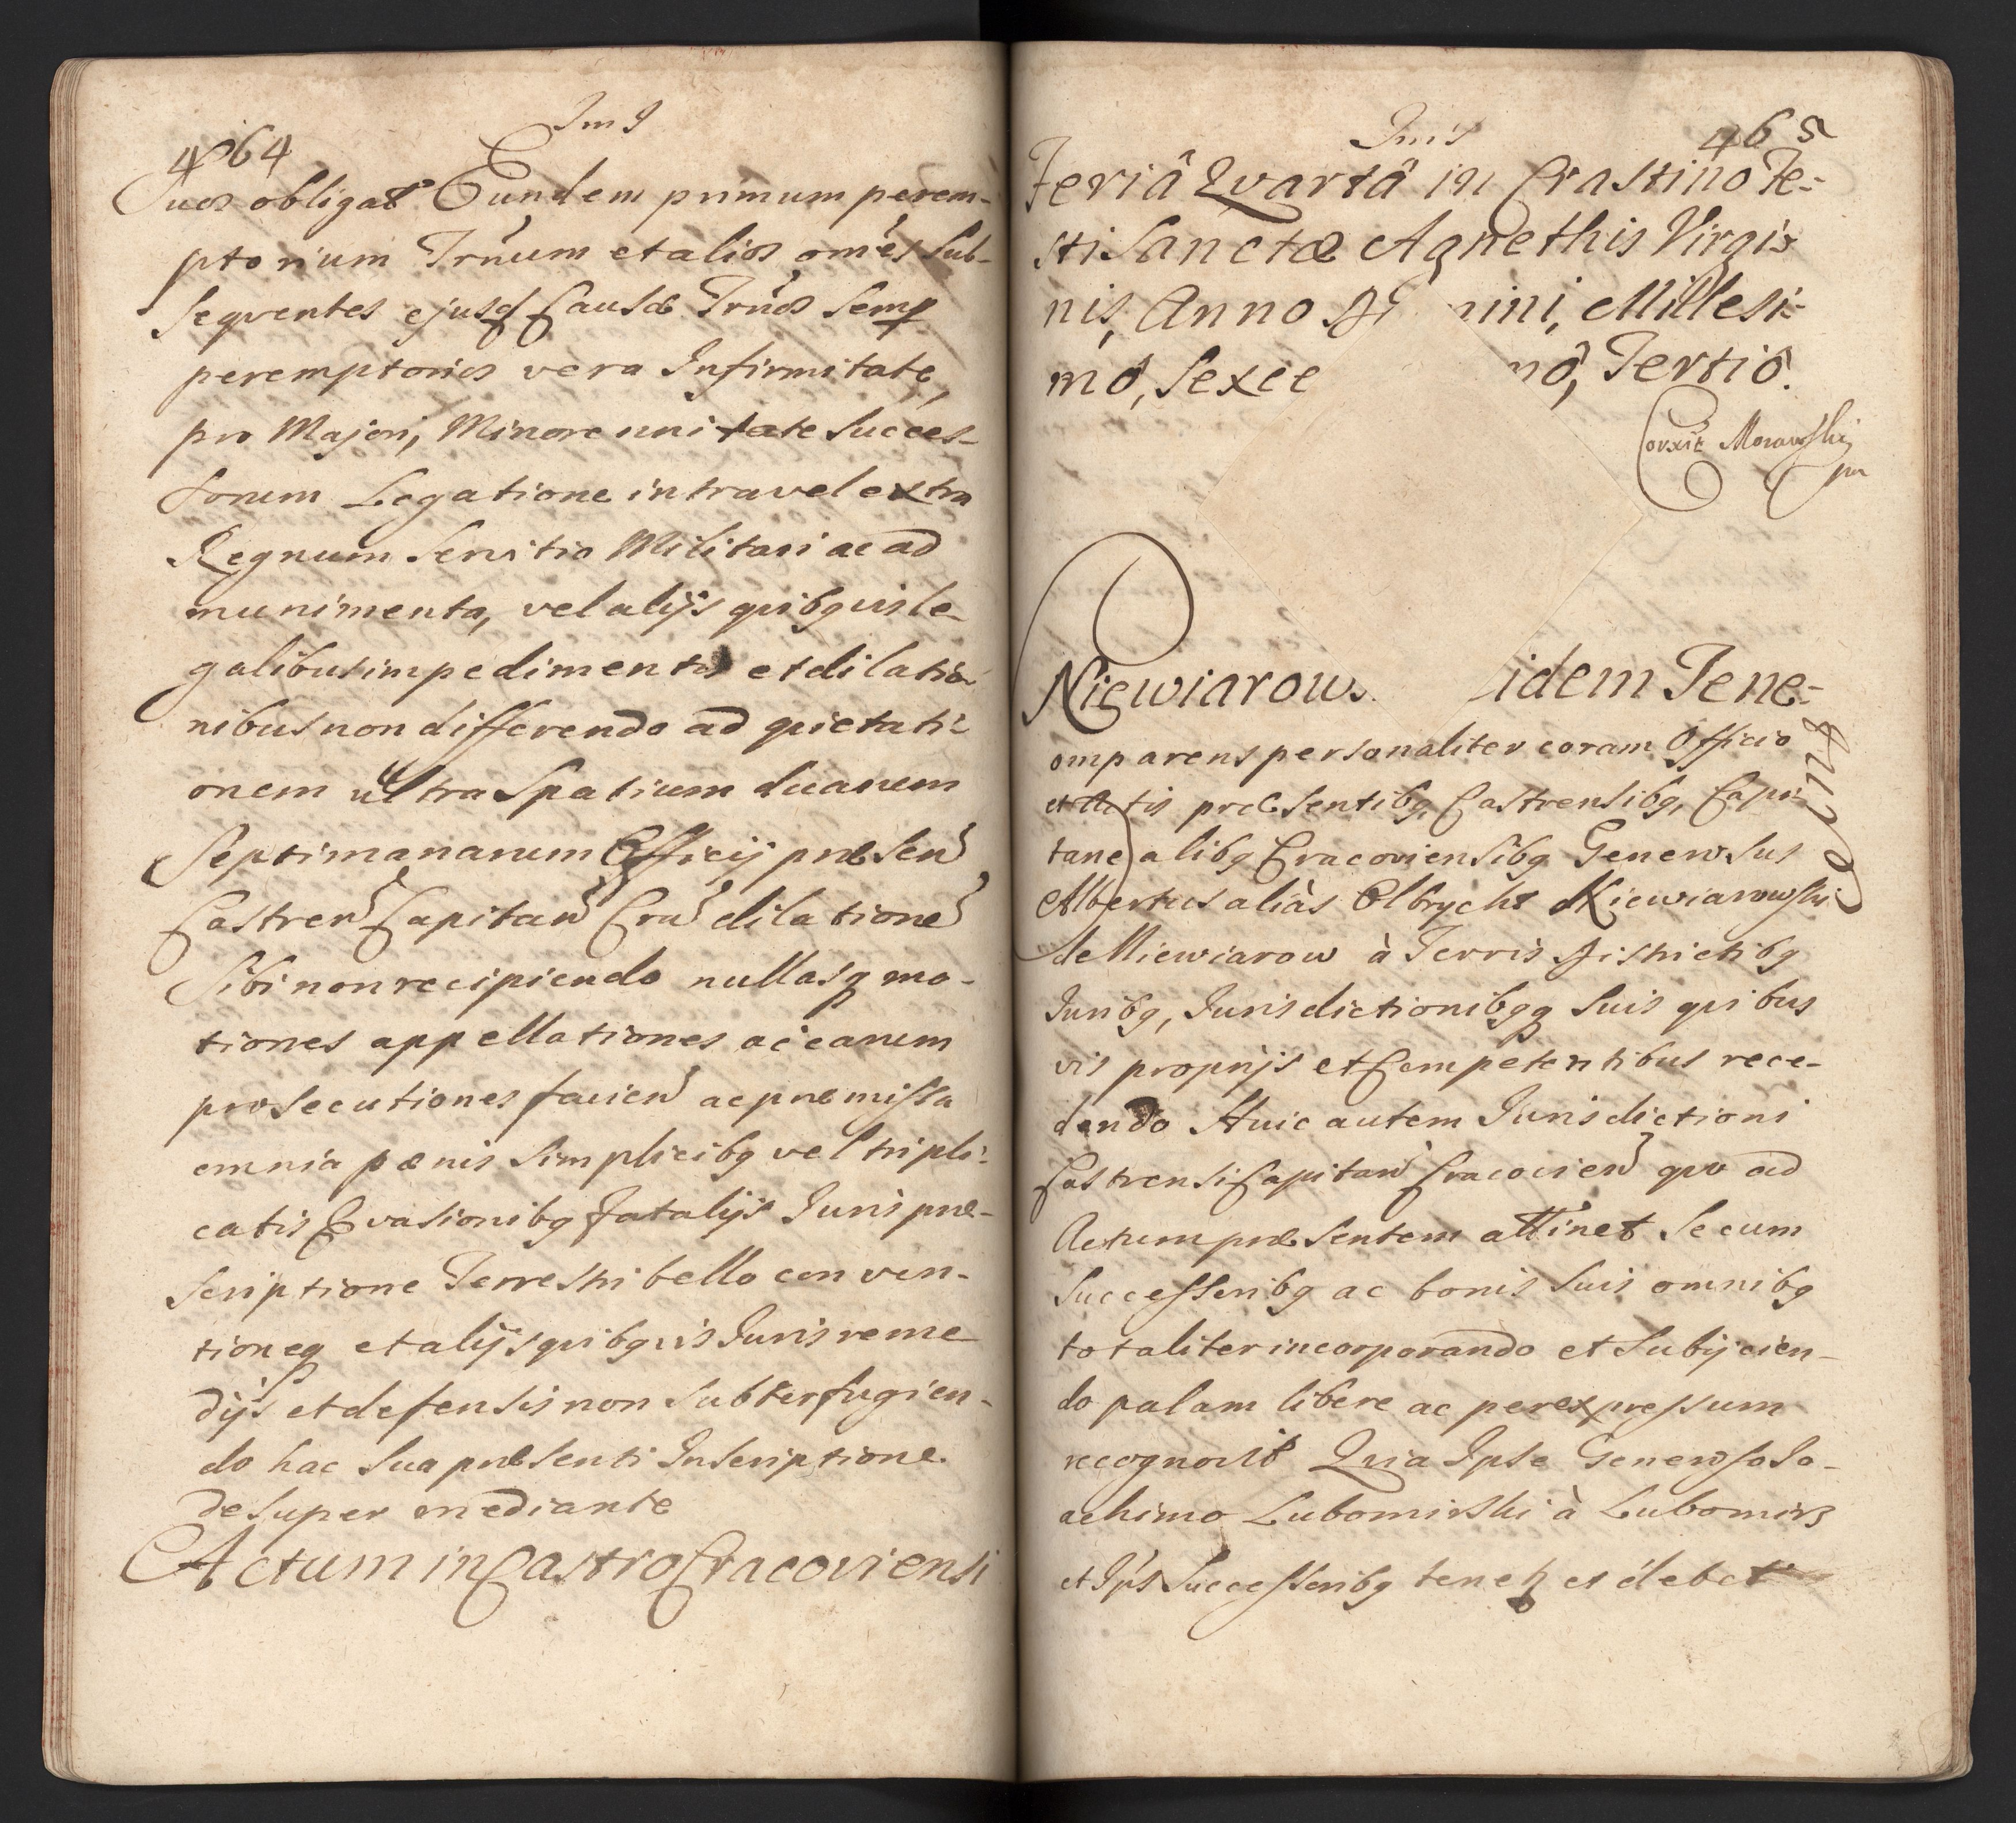 464
Suos obligat Eundem primum perem-
ptorium Trnum et alios omes Sub-
Sequentes ejusq Causæ Trnos Semp
peremptorios vera Infirmitate,
pro Majori, Minorennitate Succes-
sorum Legatione intra vel extra
Regnum Servitio Militari ac ad
munimenta, vel alijs quibquis le-
galibus impedimentis et dilatio-
nibus non differendo ad quietati-
onem ultra Spatium duarum
Septimanarum Officij præsen
Castren Capitan Cra dilatione
Sibi non recipiendo nullasq mo-
tiones appellationes ac earum
prosecutiones facien ac præmissa
omnia pœnis Simplicibq vel tripli-
catis Evasionibq fatalijs Juris præ-
scriptione Terrestri bello conven-
tioneq et alijs quibquis Juris reme-
dijs et defensis non Subterfugien-
do hac Sua præsenti Inscriptione
desuper mediante
Actum in Castro Cracoviensi
465
Feriâ Qvartâ in Crastino Fe-
sti Sanctæ Agnethis Virgi-
nis, Anno D ini, Millesi-
mô, Sexce nô, Tertiô.
Corxit Morawski
mp
Niewiarows idem Tene-
omparens personaliter coram Officio
et Actis præsentibq Castrensibq, Capi-
tanealibq Cracoviensibq Generosus
Albertus aliàs Olbrycht Niewiarowski
de Niewiarow à Terris Districtibq
Juribq, Jurisdictionibqq Suis quibus
vis proprijs et Competentibus rece-
dendo Huic autem Jurisdictioni
Castrensi Capitan Cracovien quo ad
Actum præsentem attinet Se cum
Successoribq ac bonis Suis omnibq
totaliter incorporando et Subijcien-
do palam libere ac per expressum
recognovit Quia Ipse Generoso Jo-
achimo Lubomirski à Lubomirz
et Ips Successoribq tenetz et debet